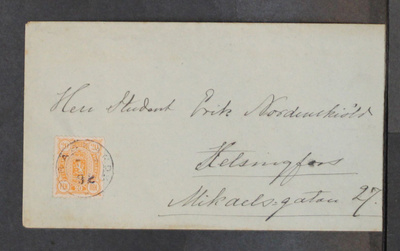 Herr Student Erik Nordenskiöld
Helsingfors
Mikaelsgatan 27.